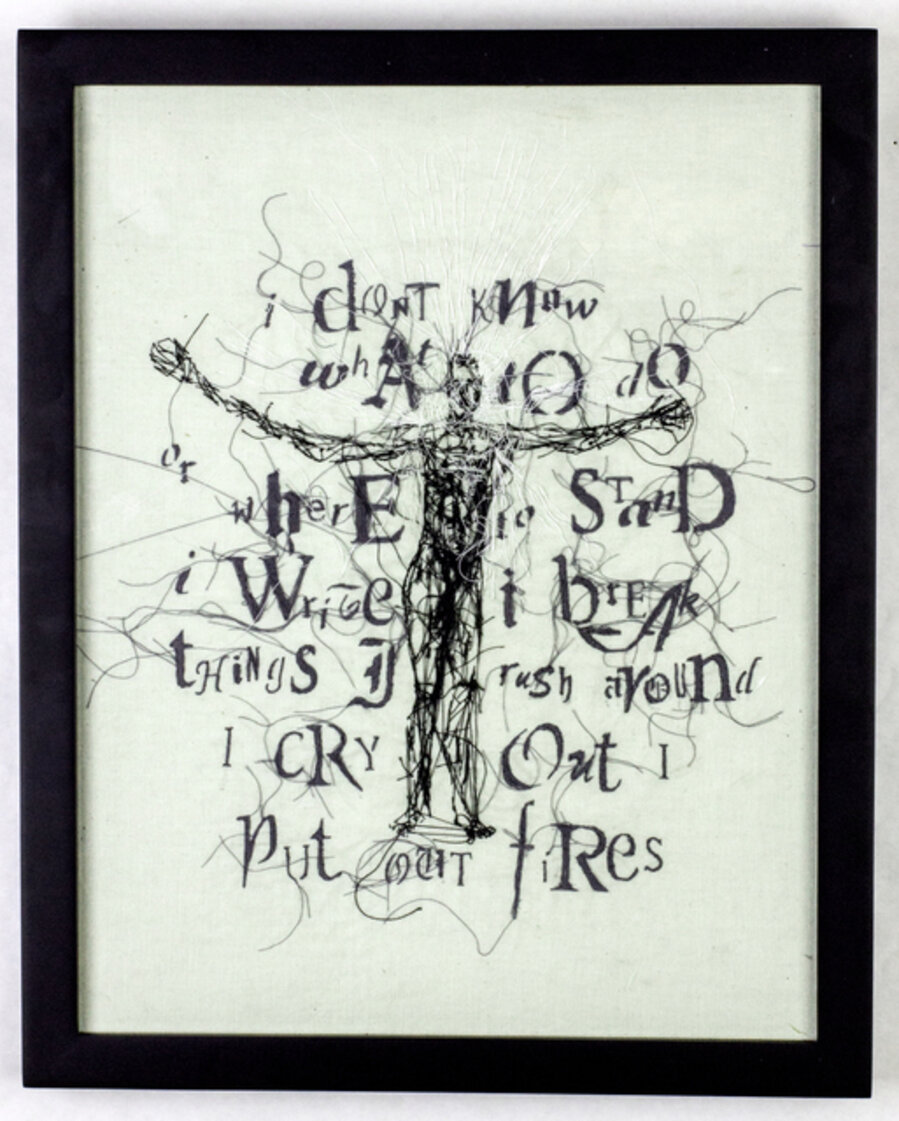 i dONT KNow
whAt tO dO
or
wherE to STanD
i Write i brEAk
tHiNgS I rush around
I CRY Out I
Put OUT fiREs